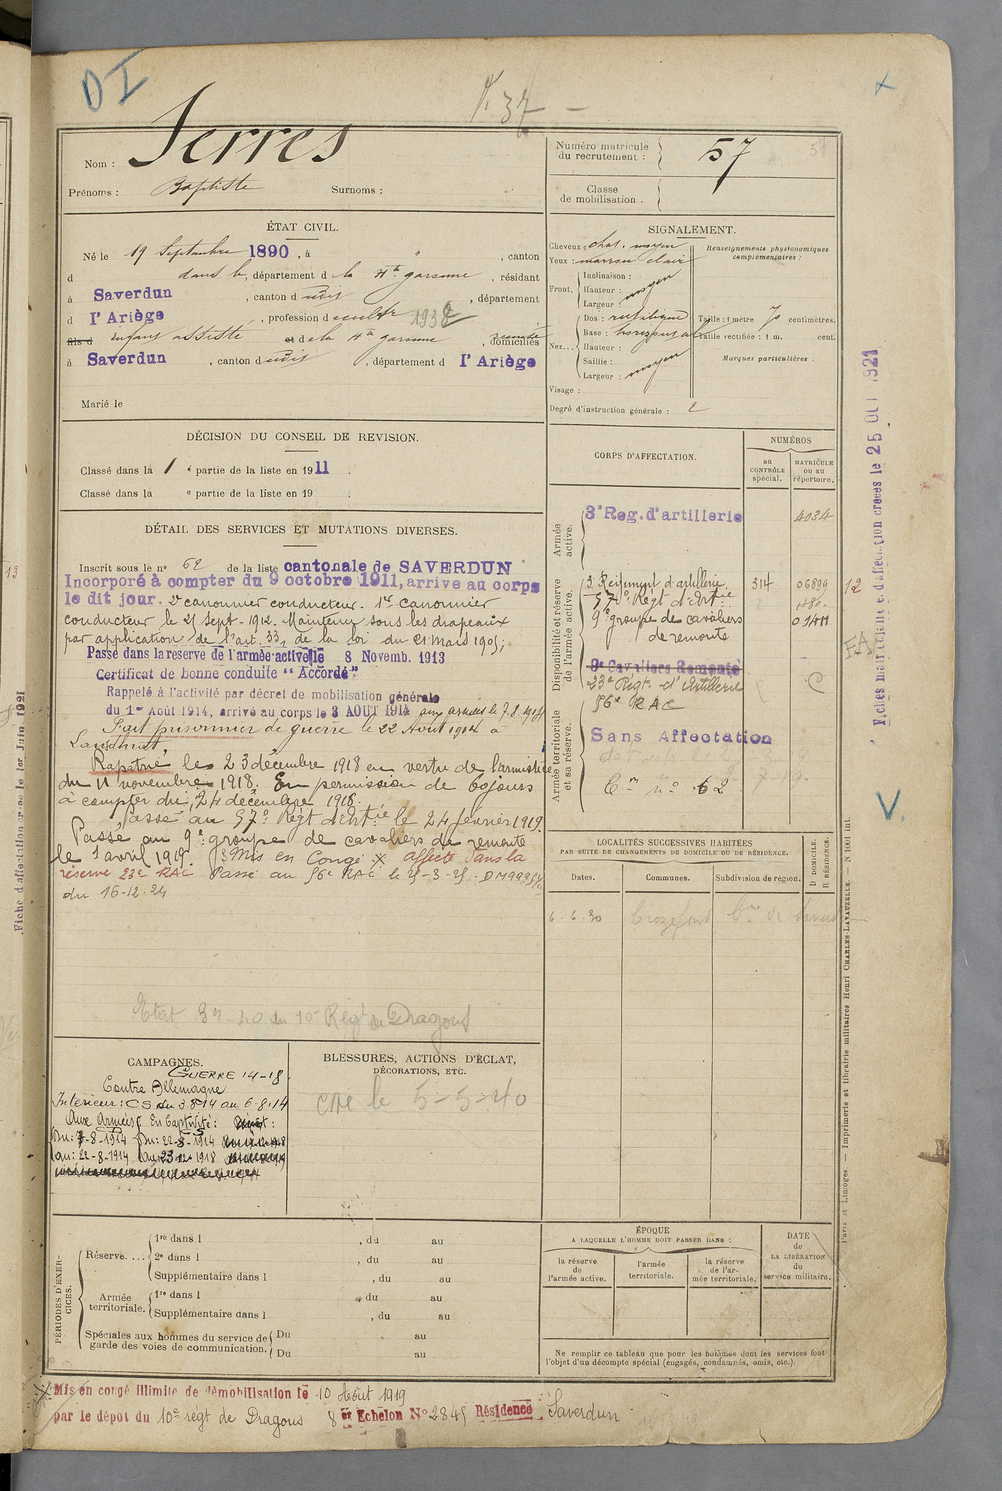 DI
Nom : Serres
Prénoms : Baptiste Surnoms :
Numéro matricule du recrutement : 57
Classe de mobilisation :
ÉTAT CIVIL.
Né le 19 Septembre 1890, à " , canton
d dans le, département de la Hte garonne, résidant
à Saverdun, canton d dudit, département
d l'Ariège, profession d cultr 1938
fils d enfant assisté et de la Hte garonne, domiciliés
à Saverdun, canton d dudit, département d l'Ariège
Marié le
SIGNALEMENT.
Cheveux : chat. moyen
Yeux : marron clair
Front. Inclinaison :
Hauteur : moyen
Largeur :
Nez... Dos : rectiligne
Base : horizontal
Hauteur :
Saillie : moyen
Largeur :
Renseignements physionomiques complémentaires :
Taille : 1 mètre 70 centimètres.
Taille rectifiée : 1 m. cent.
Marques particulières :
Visage :
Degré d'instruction générale : 2
DÉCISION DU CONSEIL DE REVISION.
Classé dans la 1 e partie de la liste en 1911.
Classé dans la e partie de la liste en 19
DÉTAIL DES SERVICES ET MUTATIONS DIVERSES.
Inscrit sous le n° 62 de la liste cantonale de SAVERDUN
Incorporé à compter du 9 octobre 1911, arrive au corps
le dit jour. 2e canonnier conducteur. 1er canonnier
conducteur le 25 Sept. 1912. Maintenu sous les drapeaux
par application de l'art. 33, de la loi du 21 Mars 1905;
Passé dans la reserve de l'armée active le 8 Novemb. 1913
Certificat de bonne conduite "Accordé"
Rappelé à l'activité par décret de mobilisation générale
du 1er Août 1914, arrivé au corps le 3 AOUT 1914 aux armées le 7.8.1914
Fait prisonnier de guerre le 22 Août 1914 à
Landshut.
Rapatrié le 23 décembre 1918 en vertu de l'armistice
du 11 novembre 1918. En permission de 60 jours
à compter du 24 décembre 1918.
Passé au 57e Régt d'Artie le 24 février 1919.
Passé au 9e groupe de cavaliers de remonte
le 1 avril 1919. Mis en Congé X affecté dans la
réserve 23e RAC Passé au 56e RAC le
du 16-12-24
Etat du 10e Régt de Dragons
CORPS D'AFFECTATION.
NUMÉROS
au CONTRÔLE spécial.
MATRICULE ou au répertoire.
Armée active.
3e Reg. d'artillerie 4034
Disponibilité et réserve de l'armée active.
3 Régiment d'artillerie 314 06899
57e Régt d'Artie
9e groupe de cavaliers 01411
de remonte
9e Cavaliers Remonte
23e Régt d'Artillerie C
Armée territoriale et sa réserve.
56e RAC
Sans Affectation
Cm no 62
12
V.
LOCALITÉS SUCCESSIVES HABITÉES
PAR SUITE DE CHANGEMENTS DE DOMICILE OU DE RÉSIDENCE.
Dates. Communes. Subdivision de région. D DOMICILE. R RÉSIDENCE.
6-6-30
CAMPAGNES.
GUERRE 14-18.
Contre Allemagne
Intérieur : CS du 3.8.14 au 6-8-14
Aux Armées En Captivité :
Du : 7-8-1914 Du : 22-8-1914
au : 22-8-1914 au 23-12-1918
BLESSURES, ACTIONS D'ÉCLAT,
DÉCORATIONS, ETC.
le 5-5-40
PÉRIODES D'EXERCICES.
Réserve.... 1re dans l , du au
2e dans l , du au
Supplémentaire dans l , du au
Armée territoriale. 1re dans l , du au
Supplémentaire dans l , du au
Spéciales aux hommes du service de garde des voies de communication. Du au
Du au
ÉPOQUE
A LAQUELLE L'HOMME DOIT PASSER DANS :
la réserve de l'armée active.
l'armée territoriale.
la réserve de l'armée territoriale.
DATE de LA LIBÉRATION du service militaire.
Ne remplir ce tableau que pour les hommes dont les services font
l'objet d'un décompte spécial (engagés, condamnés, omis, etc.).
Mis en congé illimité de démobilisation le 10 Août 1919
par le dépôt du 10e régt de Dragons 8 er Echelon N° 2845 Résidence Saverdun
Fiches matriculaire et d'affectation créées le 25 OCT 1921
Paris et Limoges. — Imprimerie et librairie militaires Henri CHARLES-LAVAUZELLE.
Fiche d'affectation créée le 1er Juin 1921
13